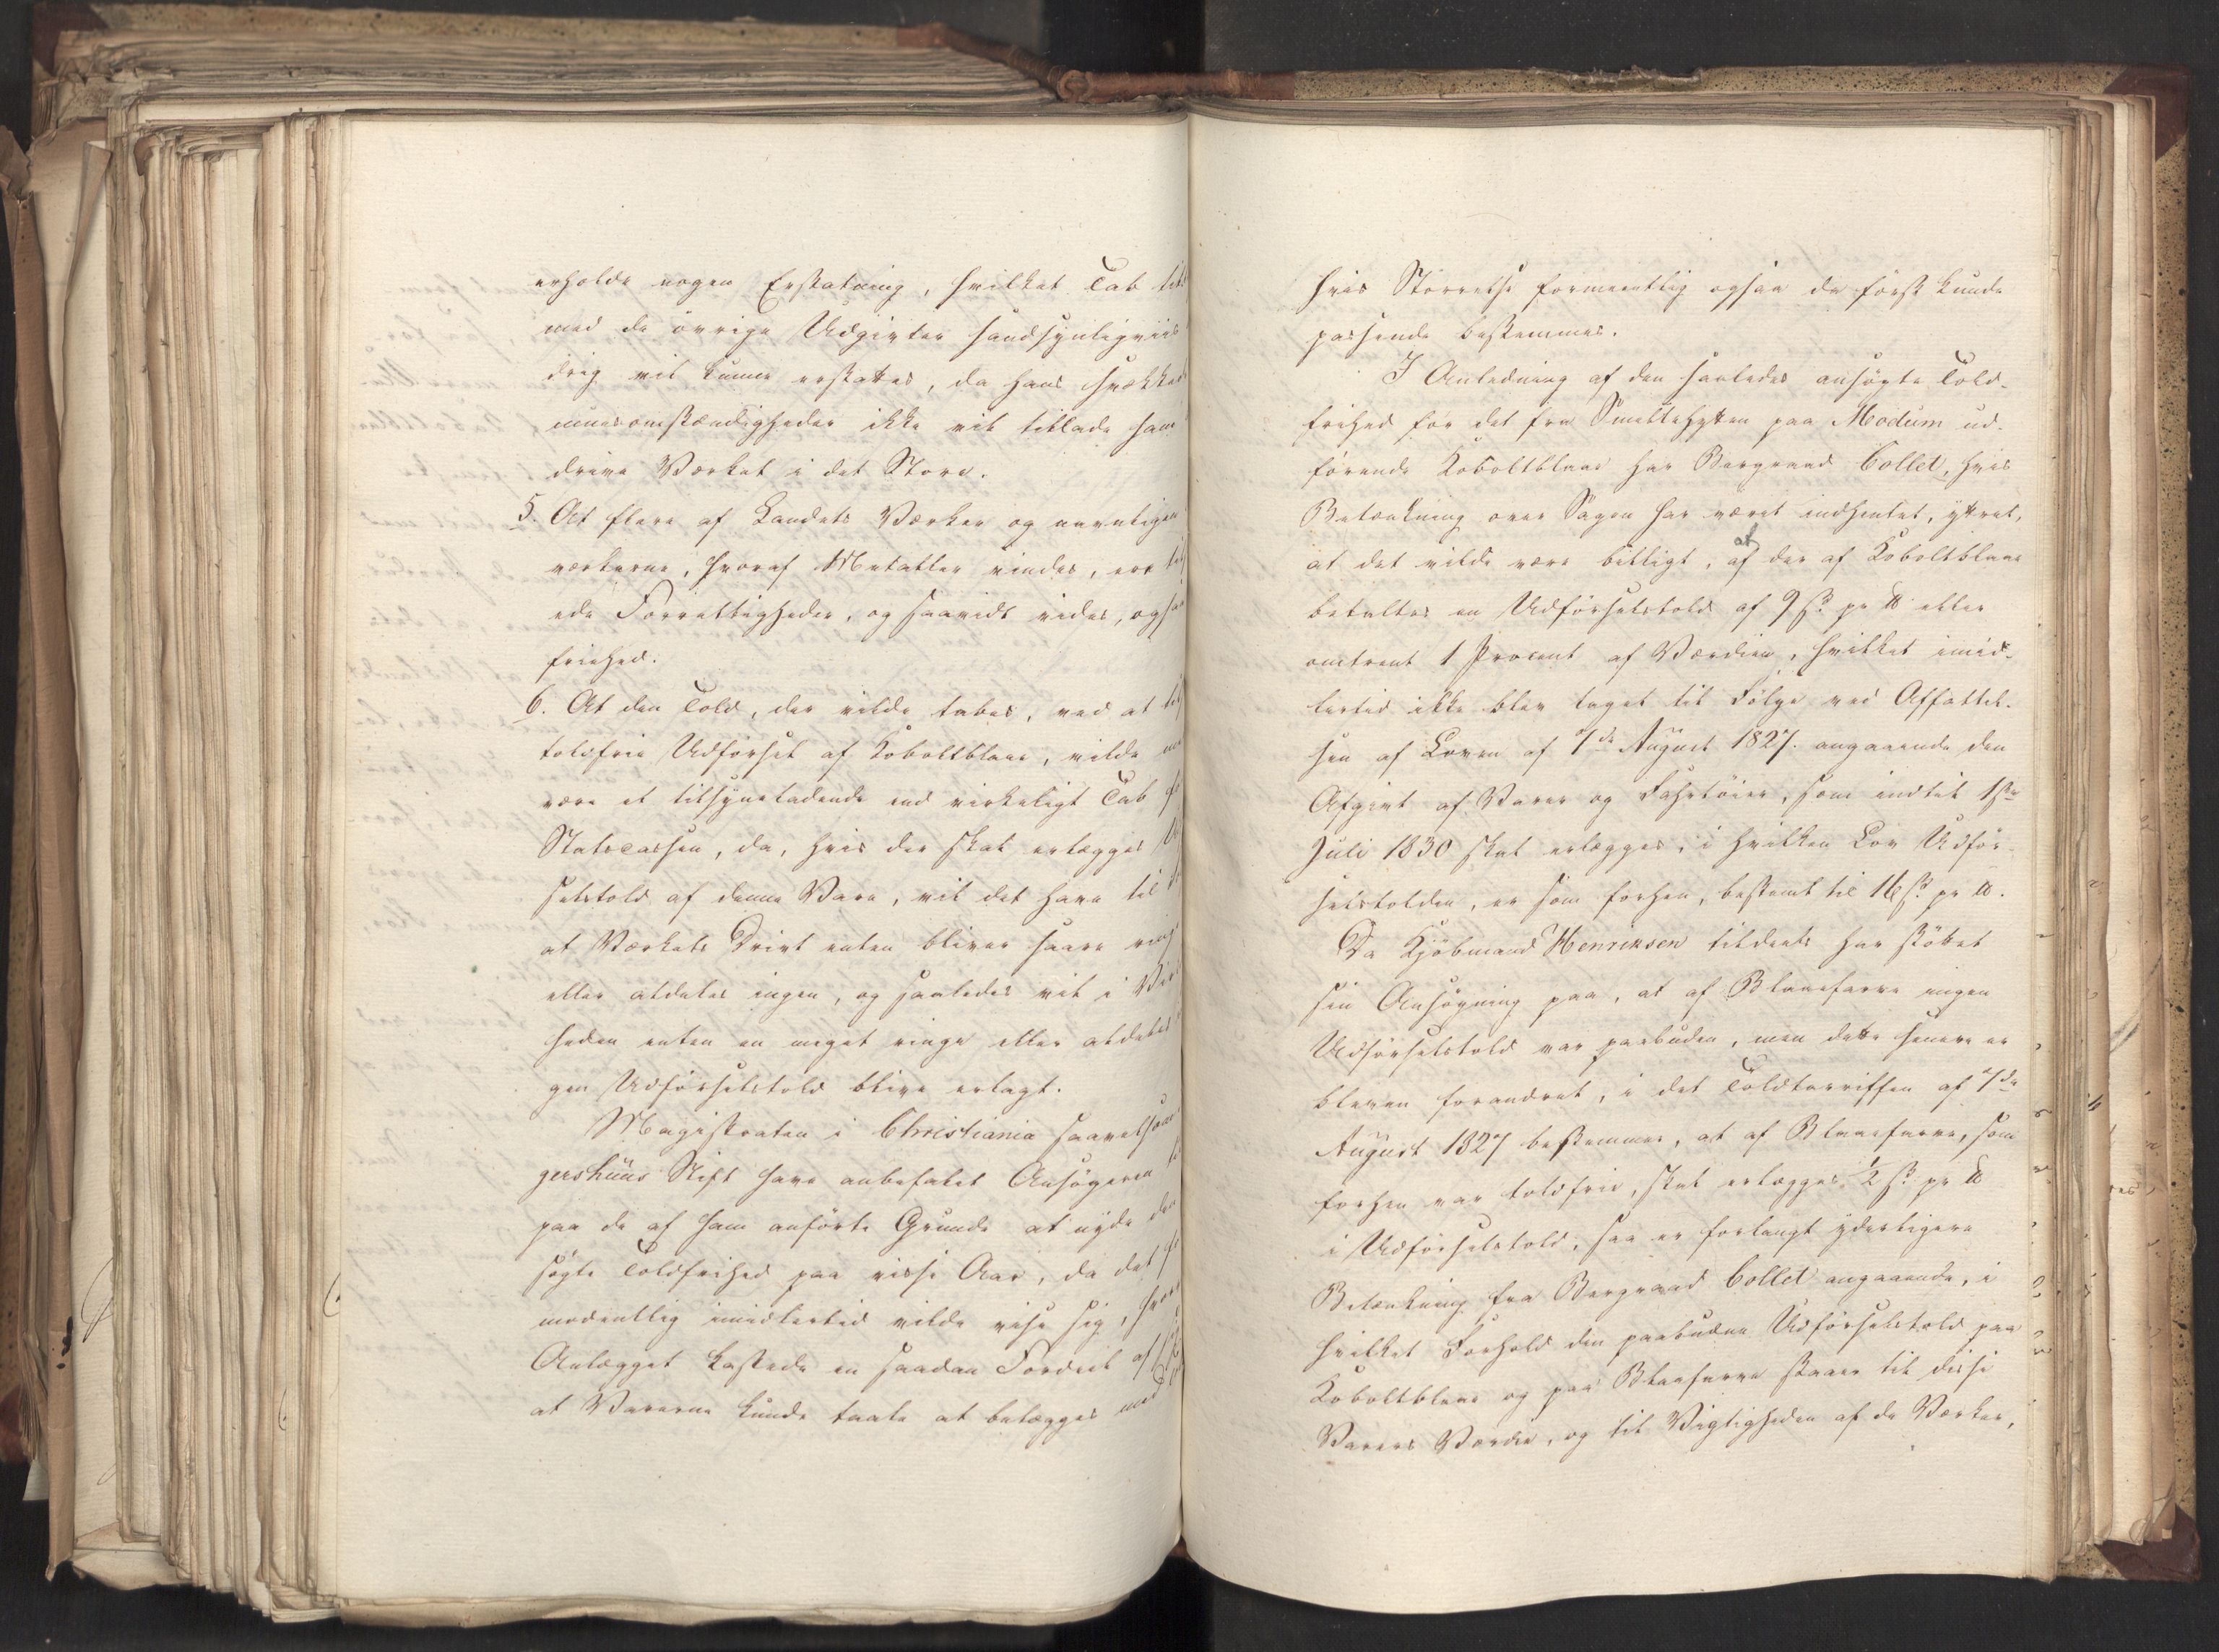 erholde nogen Erstatning, hvilket Tab
med de øvrige Udgivter sandsynligviis
drig vil kunne erstattes, da hans svækkede
muesomstændigheder ikke vil tillade ham
drive Værket i det Store.
5. At flere af Landets Værker og navnligen
værkerne, hvoraf Metaller vindes, ere
ede Forrettigheder, og saavidt vides, ogsaa
friehed.
6. At den Told, der vilde tabes, ved at
toldfrie Udførsel af Koboltblaae, vilde
være et tilsyneladende end virkeligt Tab
Statscassen, da, hvis der skal erlægges
selstold af denne Vare, vil det have til
at Værkets Drivt enten bliver saare
eller aldeles ingen, og saaledes vil i
heden enten en meget ringe eller aldeles
gen Udførselstold blive erlagt.
Magistraten i Christiania saavelsom
gershuus Stift have anbefalet Ansøgeren
paa de af ham anførte Grunde at nyde den
søgte Toldfrihed paa visse Aar, da det
modentlig imidlertid vilde vise sig,
Anlægget kastede en saadan Fordeel af
at Varerne kunde taale at belægges med
hvis Størrelse formeentlig ogsaa da først kunde
passende bestemmes.
I Anledning af den saaledes ansøgte Told-
frihed for det fra Smeltehytten paa Modum ud-
førende Koboltblaae har Bergraad Collet, hvis
Betænkning over Sagen har været indhentet, yttret,
at det vilde være billigt, at der af Koboltblaae
betaltes en Udførselstold af 9 ß pr ℔ eller
omtrent 1 Procent af Værdien, hvilket imid-
lertid ikke blev taget til Følge ved Affattel-
sen af Loven af 7de August 1827. angaaende den
Afgivt af Varer og Fahrtøier, som indtil 1ste
Juli 1830 skal erlægges, i hvilken Lov Udfør-
selstolden, er som forhen, bestemt til 16 ß pr ℔.
Da Kjøbmand Henriksen tildeels har støttet
sin Ansøgning paa, at af Blaaefarve ingen
Udførselstold var paabuden, men dette senere er
bleven forandret, i det Toldtariffen af 7de
August 1827 bestemmer, at af Blaaefarve, som
forhen var toldfrie, skal erlægges ½ ß pr ℔
i Udførselstold, saa er forlangt yderligere
Betænkning fra Bergraad Collet angaaende, i
hvilket Forhold den paabudne Udførselstold paa
Koboltblaae og paa Blaafarve staaer til disse
Varers Værdie, og til Vigtigheden af de Værker,